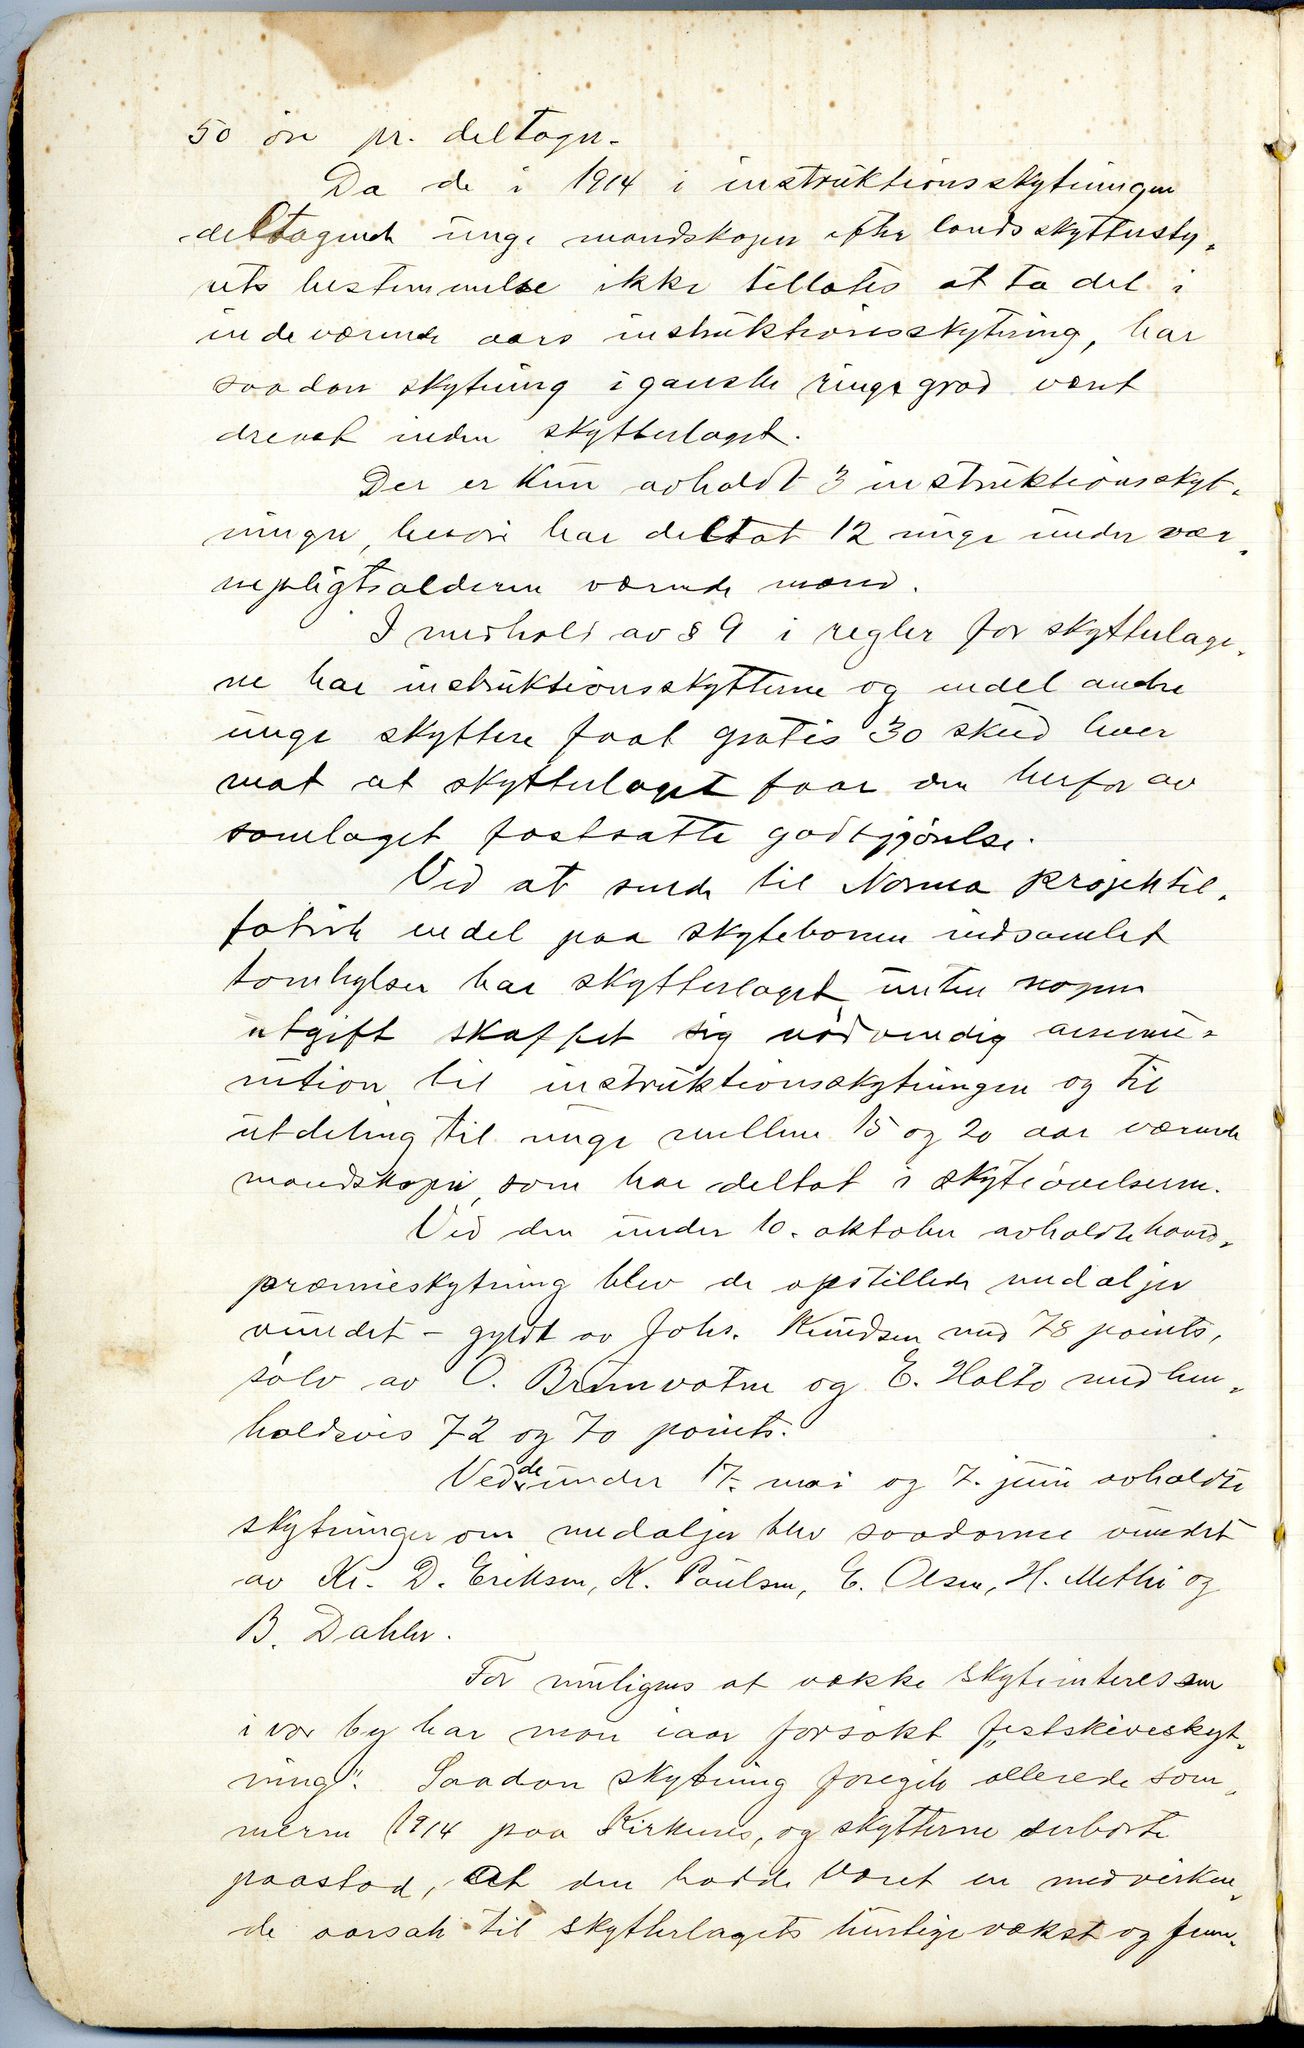 50 öre pr. deltager.
Da de i 1914 i instruktionsskytningen
deltagende unge mandskaper efter landsskytterstyr-
ets bestemmelse ikke tillates at ta del i
indeværende aars instruktionsskytning, har
saadan skytning i ganske ringe grad været
drevet inden skytterlaget.
Der er kun avholdt 3 instruktionsskyt-
ninger, hvori har deltat 12 unge under vær-
nepligtsalderen værende mænd.
I medhold av § 9 i regler for skytterlage-
ne har instruktionsskytterne og endel andre
unge skyttere faat gratis 30 skud hver
mot at skytterlaget faar den herfor av
samlaget fastsatte godtgjörelse.
Ved at sende til Norma projektil-
fabrik endel paa skytebanen indsamlet
tomhylser har skytterlaget uten nogen
utgift skaffet sig nödvendig ammu-
nition til instruktionsskytningen og til
utdeling til unge mellem 15 og 20 aar værende
mandskaper, som har deltat i skyteövelserne.
Ved den under 10. oktober avholdte hoved-
præmieskytning blev de opstillede medaljer
vundet – gyldt av Johs. Knudsen med 78 points,
sölv av O. Brunvatne og E. Halto med hen-
holdsvis 72 og 70 points.
Ved de under 17. mai og 7. juni avholdte
skytninger om medaljer blev saadanne vundet
av Kr. D. Eriksen, K. Paulsen, E. Olsen, H. Methi og
B. Dahler.
For muligens at vække skyteinteressen
i vor by har man iaar forsökt „festskiveskyt-
ning". Saadan skytning foregik allerede som-
meren 1914 paa Kirkenes, og skytterne derborte
paastod, at den hadde været en medvirken-
de aarsak til skytterlagets hurtige vækst og frem-